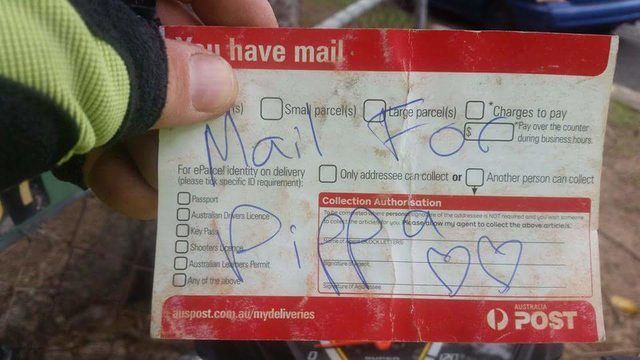 You have mail
(s) Small parcel(s) Large parcel(s) *Charges to pay
$ *Pay over the counter
during business hours.
Mail For
For eParcel identity on delivery
(please tick specific ID requirement):
Only addressee can collect or Another person can collect
Passport
Australian Drivers Licence
Key Pass
Shooters Licence
Australian Learners Permit
Any of the above
Collection Authorisation
To be completed where personal signature of the addressee is NOT required and you wish someone
to collect the article/s for you. Please allow my agent to collect the above article/s.
Name of Agent (BLOCK LETTERS)
Signature of Agent
Signature of Addressee
Pippa
auspost.com.au/mydeliveries
AUSTRALIA
POST